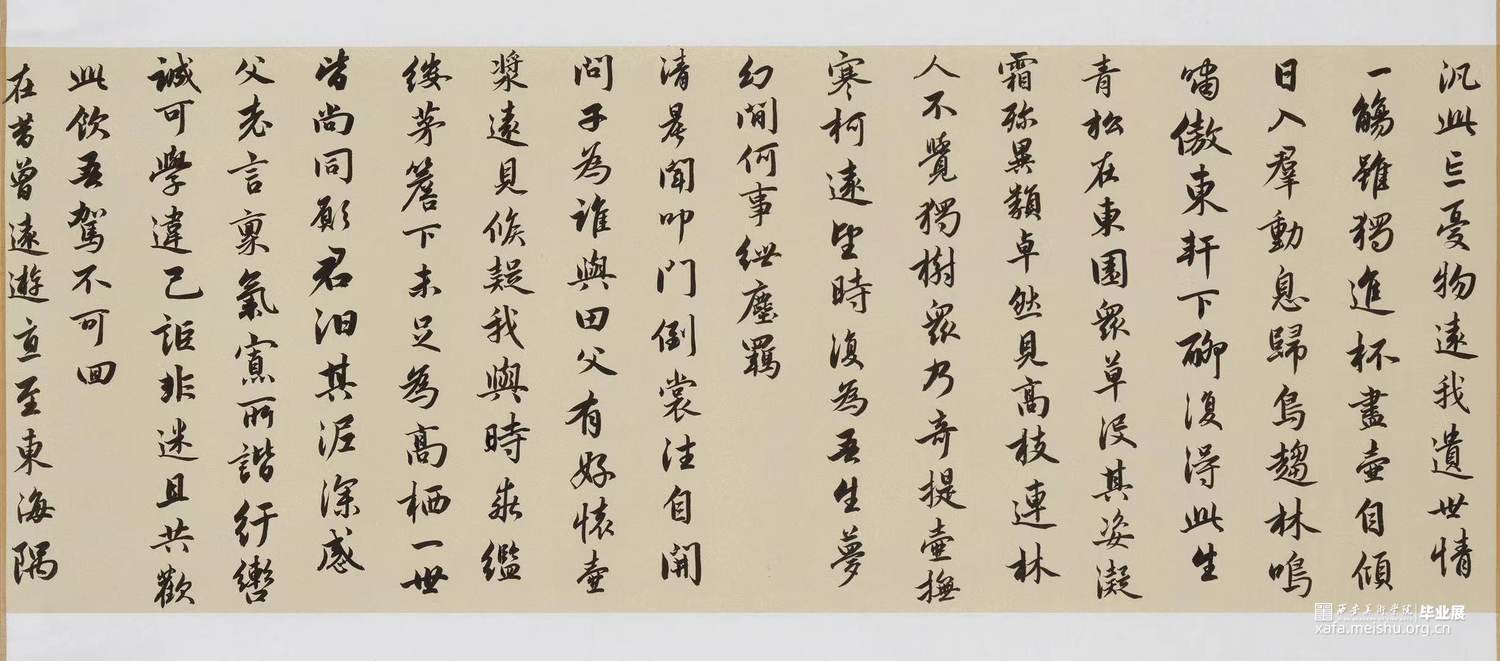 汎此忘憂物遠我遺世情
一觴雖獨進杯盡壺自傾
日入羣動息歸鳥趨林鳴
嘯傲東軒下聊復得此生
青松在東園眾草沒其姿凝
霜殄異類卓然見高枝連林
人不覺獨樹眾乃奇提壺撫
寒柯遠望時復為吾生夢
幻間何事紲塵羈
清晨聞叩門倒裳往自開
問子為誰與田父有好懷壺
漿遠見候疑我與時乖繿
縷茅簷下未足為高栖一世
皆尚同願君汩其泥深感
父老言稟氣寡所諧紆轡
誠可學違己詎非迷且共歡
此飲吾駕不可回
在昔曾遠遊直至東海隅
西安美術學院 毕业展
xafa.meishu.org.cn